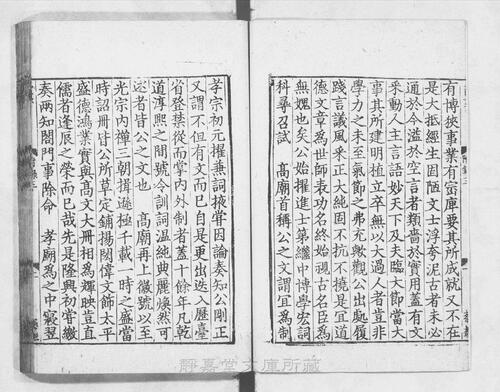 有博狹事業有窳庫要其所成就又不在
是大抵經生固陋文士浮夸泥古者未必
通於今溢於空言者類嗇於實用蓋有文
采動人主言語妙天下及夫臨大節當大
事其所建明植立卒無以大過人者豈非
學力之未至氣節之弗充歟觀公出處履
踐言議風采正大純固不抗不撓是宜道
德文章為世師表功名終始視古名臣為
無媿也矣公始擢進士第繼中博學宏詞
科尋召試　高廟首稱公之文謂宜為制
孝宗初元擢兼詞掖嘗因論奏知公剛正
又謂不但有文而已自是更出迭入歷臺
省登禁從而掌内外制者蓋十餘年凡乾
道淳熙之間號令訓詞温純典麗煥然可
述者皆公之文也　高廟再上徽號以至
光宗内禪三朝揖遜極千載一時之盛當
時詔冊皆公所草定鋪揚閎偉文飾太平
盛德鴻業實與高文大冊相為輝映豈直
儒者逢辰之榮而已哉先是隆興初嘗繳
奏兩知閤門事除命　孝廟爲之中寢翌
靜嘉堂文庫所藏